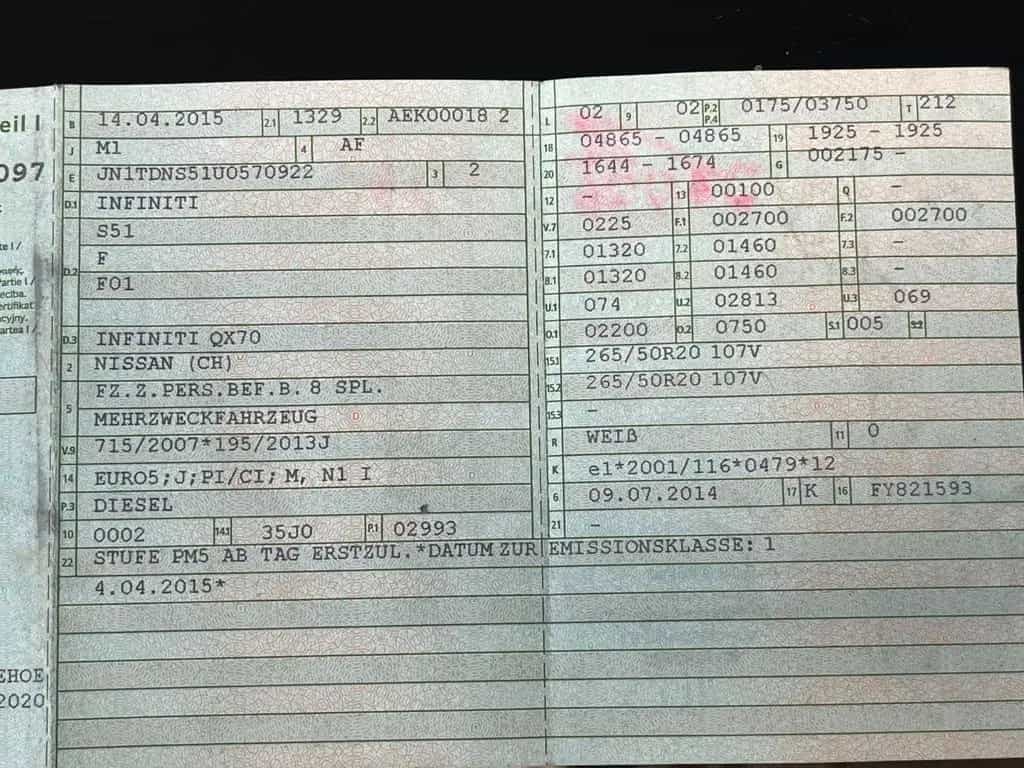 eil I
097
te I/
Partie I /
ertifikat
acyjny.
artea I /
EHOE
2020
B 14.04.2015 2.1 1329 2.2 AEK00018 2
J M1 4 AF
E JN1TDNS51U0570922 3 2
D.1 INFINITI
D.2 S51
F
F01
D.3 INFINITI QX70
2 NISSAN (CH)
5 FZ.Z.PERS.BEF.B. 8 SPL.
MEHRZWECKFAHRZEUG
V.9 715/2007*195/2013J
14 EURO5;J;PI/CI; M, N1 I
P.3 DIESEL
10 0002 14.1 35J0 P.1 02993
L 02 9 02 P.2 P.4 0175/03750 T 212
18 04865 - 04865 19 1925 - 1925
20 1644 - 1674 G 002175 -
12 - 13 00100 Q -
V.7 0225 F.1 002700 F.2 002700
7.1 01320 7.2 01460 7.3 -
8.1 01320 8.2 01460 8.3 -
U.1 074 U.2 02813 U.3 069
O.1 02200 O.2 0750 S.1 005 S.2
15.1 265/50R20 107V
15.2 265/50R20 107V
15.3 -
R WEIß 11 0
K e1*2001/116*0479*12
6 09.07.2014 17 K 16 FY821593
21 -
22 STUFE PM5 AB TAG ERSTZUL.*DATUM ZUR EMISSIONSKLASSE: 1
4.04.2015*